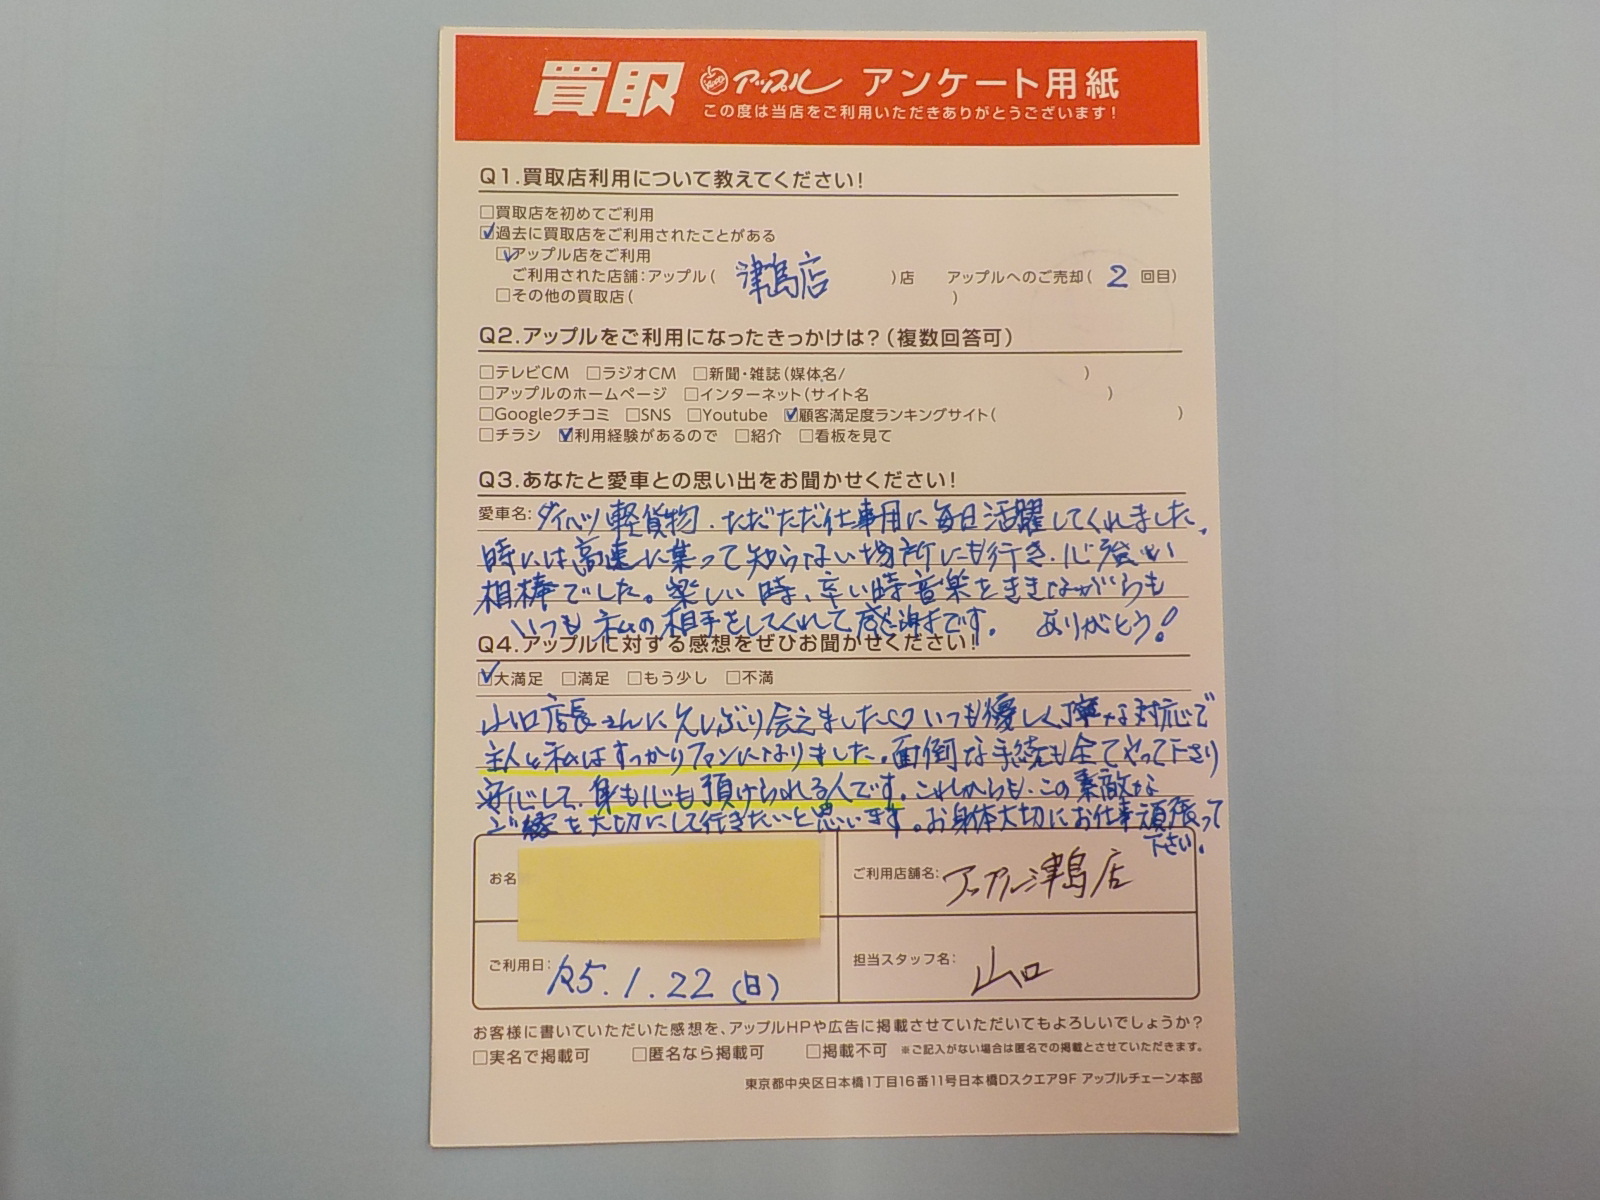 買取 アップル アンケート用紙
この度は当店をご利用いただきありがとうございます!
Q1.買取店利用について教えてください!
□買取店を初めてご利用
☑過去に買取店をご利用されたことがある
☑アップル店をご利用
ご利用された店舗:アップル( 津島店 )店 アップルへのご売却( 2 回目)
□その他の買取店( )
Q2.アップルをご利用になったきっかけは?(複数回答可)
□テレビCM □ラジオCM □新聞・雑誌(媒体名/ )
□アップルのホームページ □インターネット(サイト名 )
□Googleクチコミ □SNS □Youtube ☑顧客満足度ランキングサイト( )
□チラシ ☑利用経験があるので □紹介 □看板を見て
Q3.あなたと愛車との思い出をお聞かせください!
愛車名:ダイハツ軽貨物.ただただ仕事用に毎日活躍してくれました.
時には高速に乗って知らない場所にも行き.心強い
相棒でした。楽しい時、辛い時音楽をききながらも
いつも私の相手をしてくれて感謝です。 ありがとう!
Q4.アップルに対する感想をぜひお聞かせください!
☑大満足 □満足 □もう少し □不満
山口店長さんに久しぶり会えました♡いつも優しく丁寧な対応で
主人と私はすっかりファンになりました。面倒な手続も全てやって下さり
安心して、身も心も預けられる人です。これからも、この素敵な
ご縁を大切にして行きたいと思います。お身体大切にお仕事頑張って
下さい。
お名
ご利用店舗名:アップル津島店
ご利用日:R5.1.22(日)
担当スタッフ名:山口
お客様に書いていただいた感想を、アップルHPや広告に掲載させていただいてもよろしいでしょうか?
□実名で掲載可 □匿名なら掲載可 □掲載不可 ※ご記入がない場合は匿名での掲載とさせていただきます。
東京都中央区日本橋1丁目16番11号日本橋Dスクエア9F アップルチェーン本部